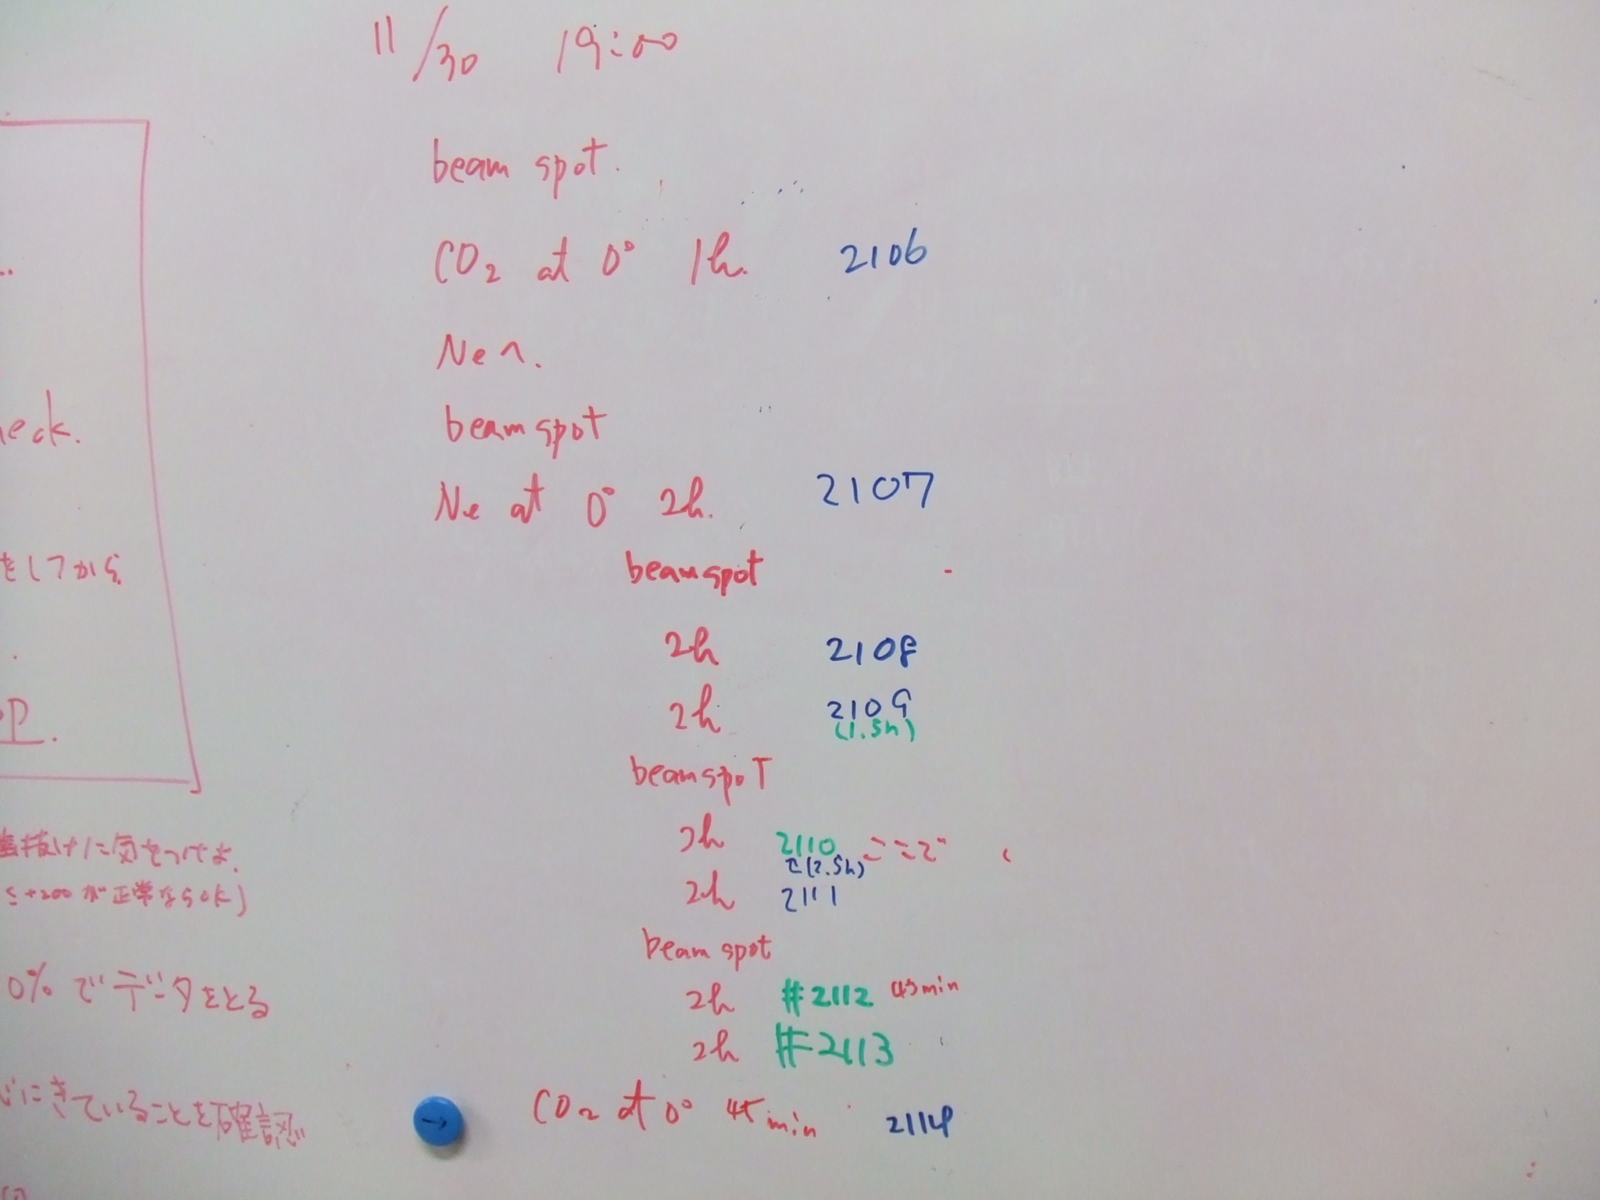 11/30 19:00
beam spot.
CO₂ at 0° 1h. 2106
Ne へ.
beam spot
Ne at 0° 2h. 2107
beam spot
2h 2108
2h 2109
(1.5h)
beam spoT
2110 ここで
(2.5h)
2h 2111
beam spot
2h #2112 45min
2h #2113
→ CO₂ at 0° 45 min 2114
eck.
をしてから
OP.
抜けに気をつけよ.
+200が正常ならOK)
0%でデータをとる
にきていることを確認